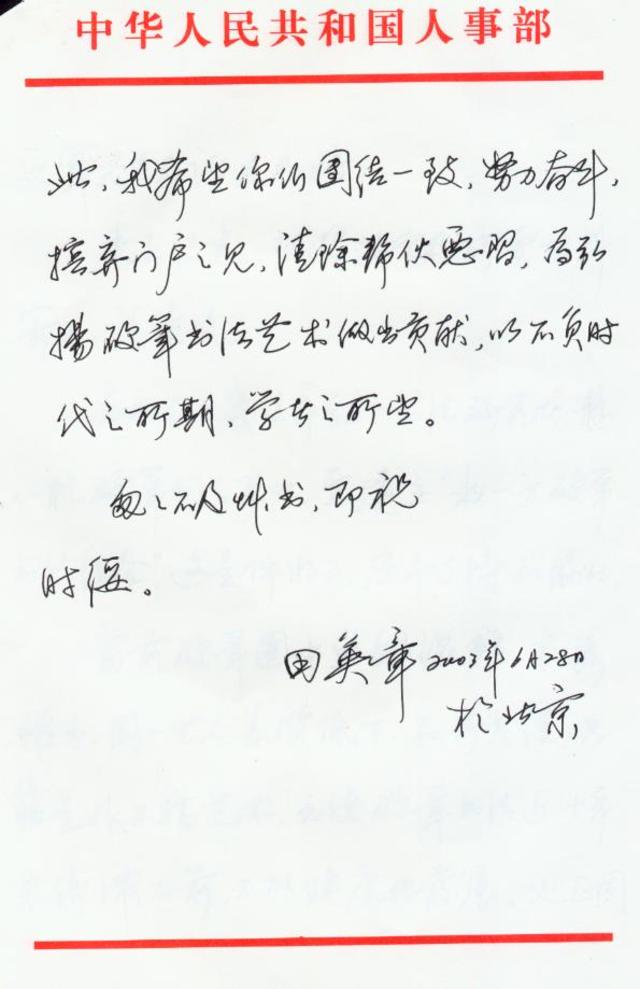 中华人民共和国人事部
此，我希望你们團结一致，努力奋斗，
摈弃门户之见，清除帮伙恶习，为弘
揚硬筆书法艺术做出贡献，以不负时
代之所期、学书之所望。
匆匆不及草书，即祝
时绥。
田英章2003年6月28日
於北京